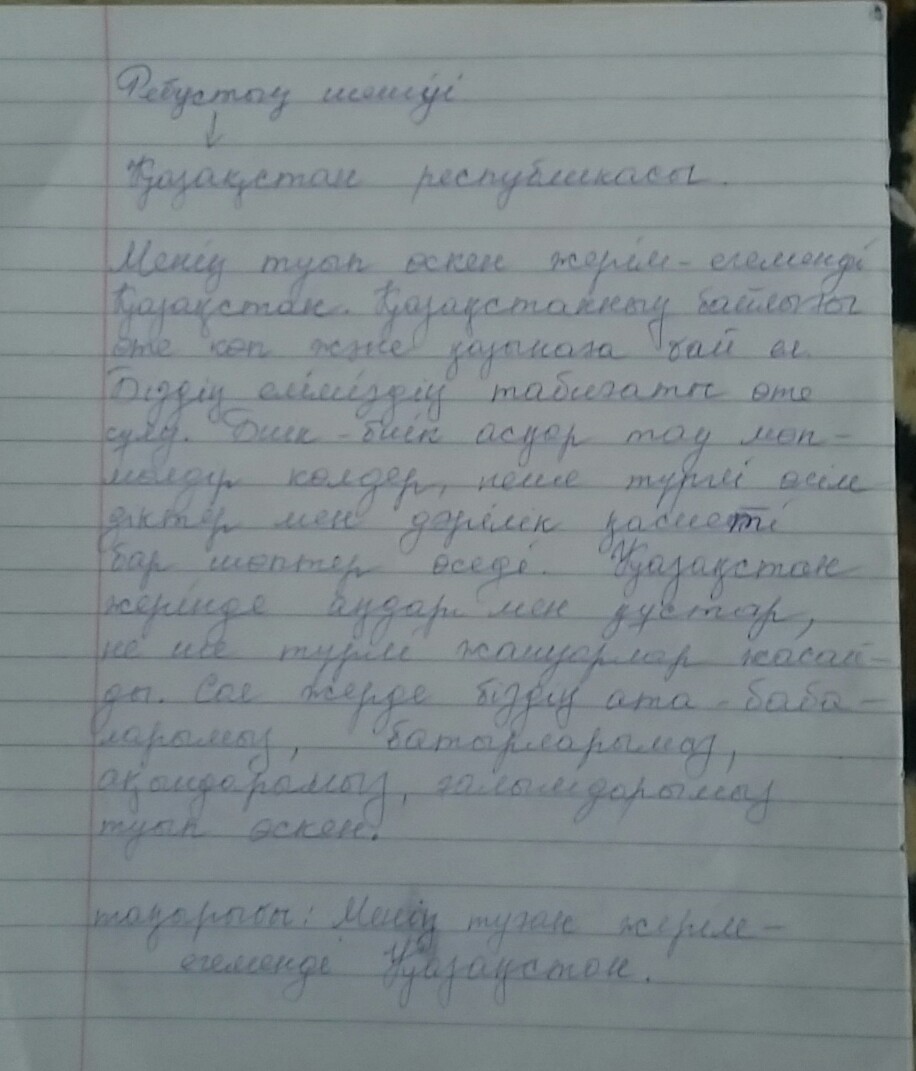 Ребустың шешуі
↓
Қазақстан республикасы.
Менің туып өскен жерім - егеменді
Қазақстан. Қазақстанның байлығы
өте көп және қазынаға бай ел.
Біздің еліміздің табиғаты өте
сұлу. Биік - биік асқар тау мөп -
мөлдір көлдер, неше түрлі өсім
діктер мен дәрілік қасиеті
бар шөптер өседі. Қазақстан
жерінде аңдар мен құстар,
не ше түрлі жануарлар жасай-
ды. Сол жерде біздің ата - баба -
ларымыз, батырларымыз,
ақындарымыз, ғалымдарымыз
туып өскен.
тақырыбы: Менің туған жерім -
егеменді Қазақстан.